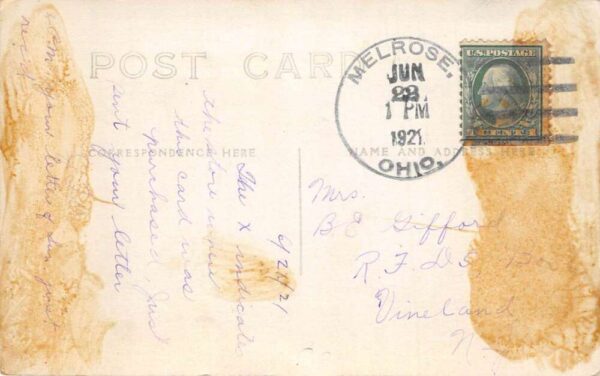 POST CARD
CORRESPONDENCE HERE
NAME AND ADDRESS HERE
MELROSE,
JUN
22
1 PM
1921
OHIO.
U.S. POSTAGE
1 CENT 1
6/21/21
The X indicates
the store where
this card was
purchased, just
sent your letter
your letter & Ira just
rec'd
Mrs.
B E Gifford
R. F. D 5
Vineland
N